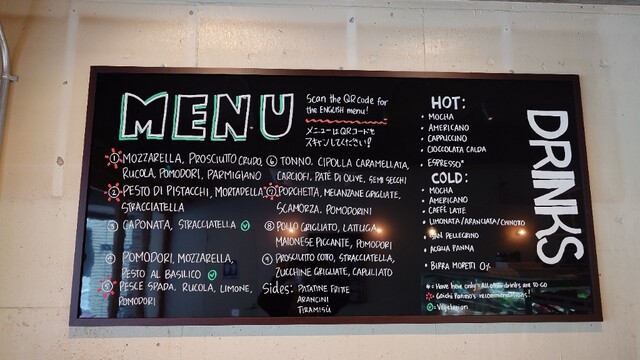 MENU
Scan the QR code for
the ENGLISH menu!
メニューはQRコードを
スキャンしてください!
① MOZZARELLA, PROSCIUTTO CRUDO,
RUCOLA, POMODORI, PARMIGIANO
② PESTO DI PISTACCHI, MORTADELLA,
STRACCIATELLA
③ CAPONATA, STRACCIATELLA
④ POMODORI, MOZZARELLA,
PESTO AL BASILICO
⑤ PESCE SPADA, RUCOLA, LIMONE,
POMODORI
⑥ TONNO, CIPOLLA CARAMELLATA,
CARCIOFI, PATÈ DI OLIVE, SEMI SECCHI
⑦ PORCHETTA, MELANZANE GRIGLIATE,
SCAMORZA, POMODORINI
⑧ POLLO GRIGLIATO, LATTUGA,
MAIONESE PICCANTE, POMODORI
⑨ PROSCIUTTO COTTO, STRACCIATELLA,
ZUCCHINE GRIGLIATE, CAPULIATO
Sides: PATATINE FRITTE
ARANCINI
TIRAMISÙ
DRINKS
HOT:
• MOCHA
• AMERICANO
• CAPPUCCINO
• CIOCCOLATA CALDA
• ESPRESSO*
COLD:
• MOCHA
• AMERICANO
• CAFFÈ LATTE
• LIMONATA/ARANCIATA/CHINOTTO
• SAN PELLEGRINO
• ACQUA PANNA
• BIRRA MORETTI 0%
* = Have here only! All other drinks are TO-GO
Panino's recommendations!
= Vegetarian